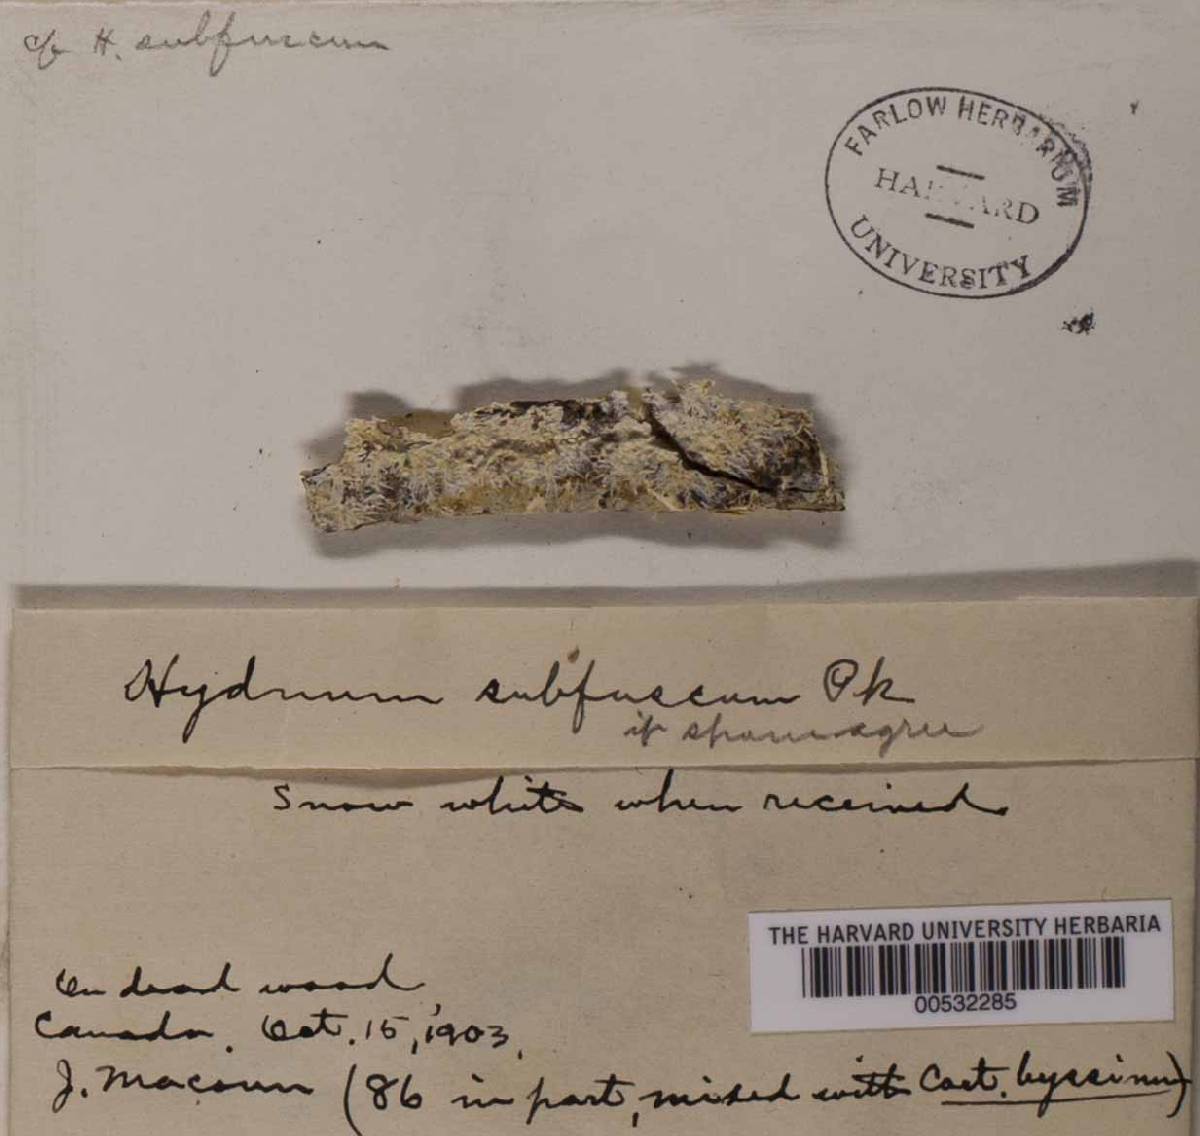 cfr H. subfuscum
FARLOW HERBARIUM
HARVARD
UNIVERSITY
Hydnum subfuscum Pk
if spores agree
Snow white when received
THE HARVARD UNIVERSITY HERBARIA
00532285
On dead wood
Canada. Oct. 15, 1903,
J. Macoun (86 in part, mixed with Cort. byssinum)